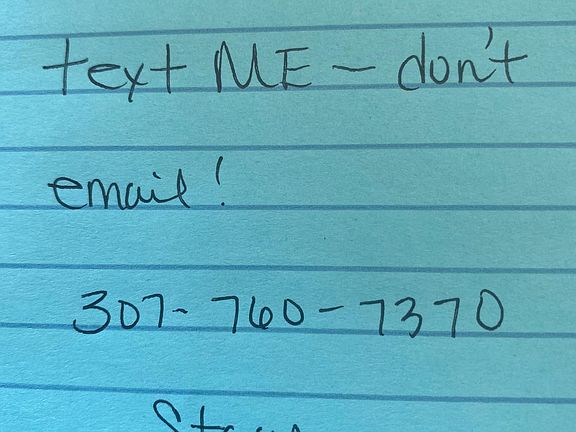 text ME - don't
email!
307-760-7370